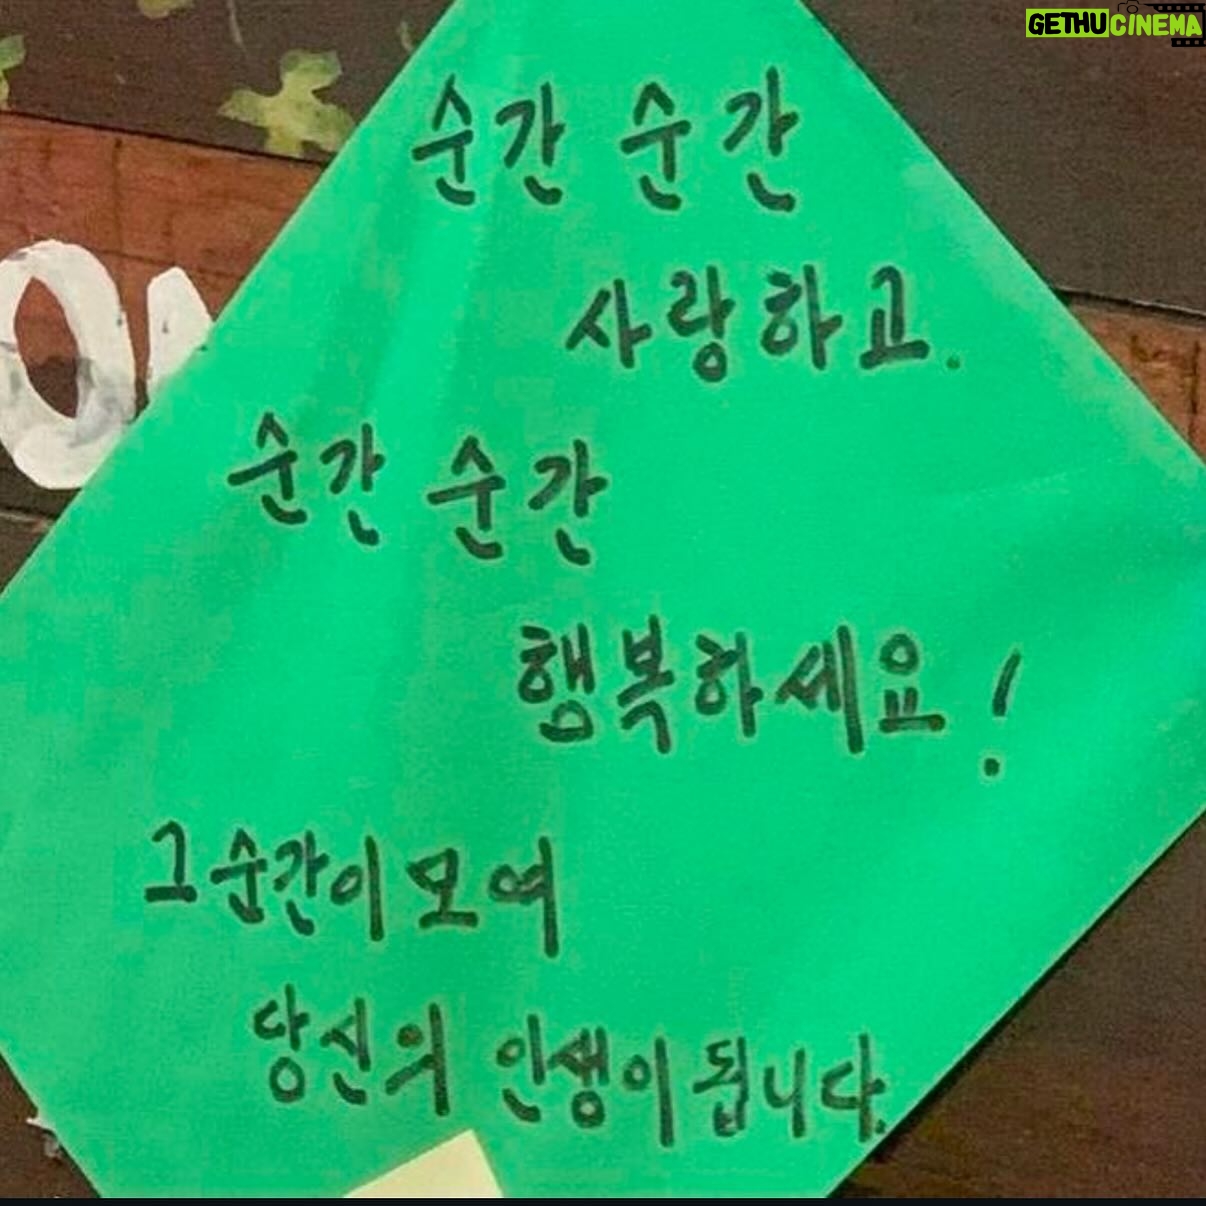 GETHUCINEMA
순간 순간
사랑하고.
순간 순간
행복하세요!
그 순간이 모여
당신의 인생이 됩니다.